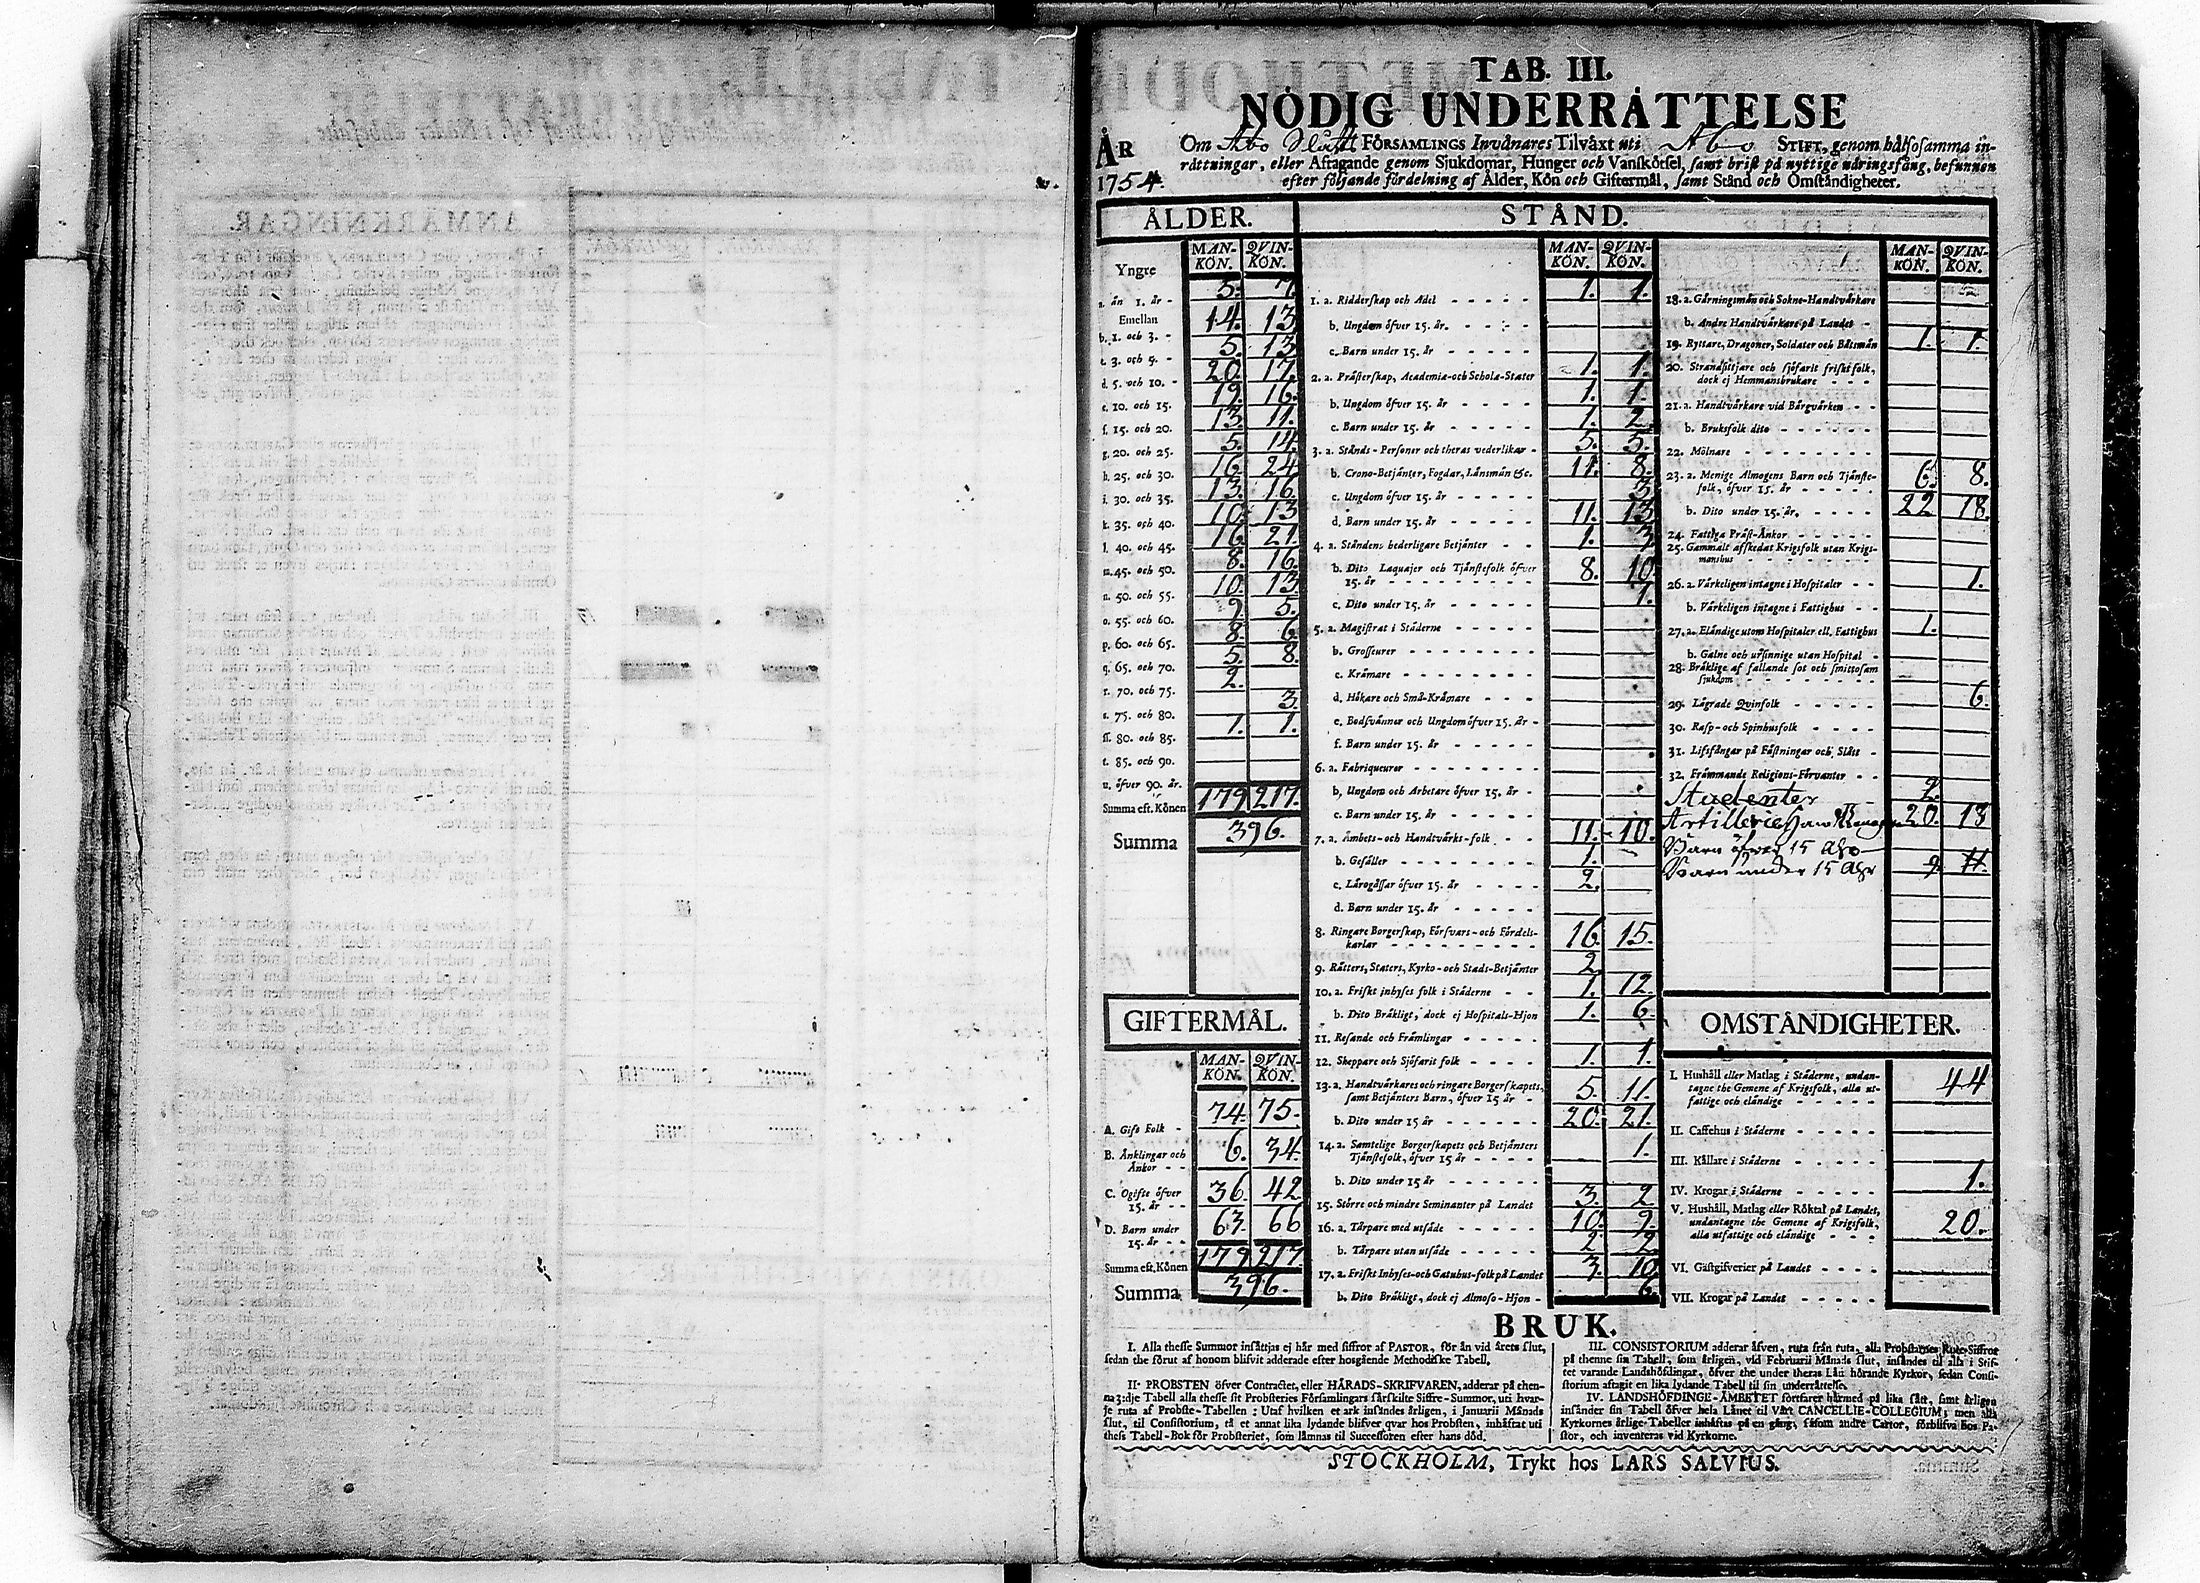 TAB. III.
NÖDIG UNDERRÄTTELSE
ÅR 1754.
Om Åbo Slått FÖRSAMLINGS Invånares Tilväxt uti Åbo STIFT, genom hälsosamma in-
råttningar, eller Aftagande genom Sjukdomar, Hunger och Vanskötsel, samt brist på nyttige näringsfång, befunnen
efter följande fördelning af Ålder, Kön och Giftermål, samt Stånd och Omständigheter.
ÅLDER.
MAN-KÖN. QVIN-KÖN.
Yngre
a. än 1. år - 5. 7.
Emellan
b. 1. och 3. - 14. 13
c. 3. och 5. - 5. 13
d. 5. och 10. - 20. 17.
e. 10. och 15. 19. 16.
f. 15. och 20. 13. 11.
g. 20. och 25. 5. 14.
h. 25. och 30. 16. 24
i. 30. och 35. 13. 16.
k. 35. och 40. 10. 13
l. 40. och 45. 16. 21.
m. 45. och 50. 8. 16.
n. 50. och 55. 10. 13
o. 55. och 60. 9. 5.
p. 60. och 65. 8. 6.
q. 65. och 70. 5. 8.
r. 70. och 75. 2.
s. 75. och 80. 3.
ss. 80. och 85. 1. 1.
t. 85. och 90.
u. öfver 90. år.
Summa eft. Könen 179 217.
Summa 396.
GIFTERMÅL.
MAN-KÖN. QVIN-KÖN.
A. Gift Folk - 74. 75.
B. Änklingar och Änkor - - 6. 34.
C. Ogifte öfver 15. år - - 36. 42
D. Barn under 15. år - - 63. 66
Summa eft. Könen 179 217
Summa 396.
STÅND.
MAN-KÖN. QVIN-KÖN.
1. a. Ridderskap och Adel - - - - - 1. 1.
b. Ungdom öfver 15. år. - - - -
c. Barn under 15. år - - - - -
2. a. Prästerskap, Academiæ-och Scholæ-Stater 1. 1.
b. Ungdom öfver 15. år - - - - - 1. 1.
c. Barn under 15. år - - - - - 1. 2.
3. a. Stånds-Personer och theras vederlikar - 5. 5.
b. Crono-Betjänter, Fogdar, Länsmän &c. 11. 8.
c. Ungdom öfver 15. år - - - - - 3.
d. Barn under 15. år - - - - - 11. 13
4. a. Ståndens hederligare Betjänter - - 1. 3
b. Dito Laquajer och Tjänstefolk öfver 15. år - - - - - 8. 10.
c. Dito under 15. år - - - - - 1.
5. a. Magistrat i Städerne - - - - -
b. Grosseurer - - - - -
c. Krämare - - - - -
d. Hökare och Små-Krämare - - -
e. Bodsvänner och Ungdom öfver 15. år -
f. Barn under 15. år - - - - -
6. a. Fabriqueurer - - - - -
b. Ungdom och Arbetare öfver 15. år -
c. Barn under 15. år - - - - -
7. a. Ämbets-och Handtvärks-folk - - - 11. 10.
b. Gesäller - - - - - 1.
c. Lärogåssar öfver 15. år - - - - 2.
d. Barn under 15. år - - - - -
8. Ringare Borgerskap, Försvars-och Fördels-karlar - - - - - 16. 15.
9. Rätters, Staters, Kyrko-och Stads-Betjänter 2.
10. a. Friskt inhyses folk i Städerne - - 1. 12.
b. Dito Bräkligt, dock ej Hospitals-Hjon 1. 6.
11. Resande och Främlingar - - - -
12. Skeppare och Sjöfarit folk - - - - 1. 1.
13. a. Handtvärkares och ringare Borgerskapets, samt Betjänters Barn, öfver 15 år - 5. 11.
b. Dito under 15 år - - - - - 20. 21.
14. a. Samtelige Borgerskapets och Betjänters Tjänstefolk, öfver 15 år - - - - - 1.
b. Dito under 15 år - - - - -
15. Större och mindre Seminanter på Landet 3. 2.
16. a. Tårpare med utsäde - - - - - 10. 9.
b. Tårpare utan utsäde - - - - - 2. 2.
17. a. Friskt Inhyses-och Gatuhus-folk på Landet 3. 10.
b. Dito Bräkligt, dock ej Almoso-Hjon - 6.
MAN-KÖN. QVIN-KÖN.
18. a. Gärningsmän och Sokne-Handtvärkare
b. Andre Handtvärkare på Landet -
19. Ryttare, Dragoner, Soldater och Båtsmän 1. 1.
20. Strandsittjare och sjöfarit friskt folk, dock ej Hemmansbrukare - - -
21. a. Handtvärkare vid Bärgvärken - -
b. Bruksfolk dito - - - - -
22. Mölnare - - - - -
23. a. Menige Almogens Barn och Tjänste-folk, öfver 15. år - - - - - 6. 8.
b. Dito under 15. år. - - - - 22 18.
24. Fattiga Präst-Änkor - - - - -
25. Gammalt affskedat Krigsfolk utan Krigs-manshus - - - - -
26. a. Värkeligen intagne i Hospitaler - - 1.
b. Värkeligen intagne i Fattighus - -
27. a. Eländige utom Hospitaler ell. Fattighus 1.
b. Galne och ursinnige utan Hospital -
28. Bräklige af fallande sot och smittosam sjukdom - - - - -
29. Lägrade Qvinfolk - - - - - 6.
30. Rasp-och Spinhusfolk - - - - -
31. Lifsfångar på Fästningar och Slått -
32. Främmande Religions-Förvanter - -
Studenter - 2.
Artillerie 20. 13
Barn öfver 15 Åhr
Barn under 15 Åhr 9. 11.
OMSTÄNDIGHETER.
I. Hushåll eller Matlag i Städerne, undan-tagne the Gemene af Krigsfolk, alla ut-fattige och eländige - - - - - 44
II. Caffehus i Städerne - - - - -
III. Källare i Städerne - - - - -
IV. Krogar i Städerne - - - - - 1.
V. Hushåll, Matlag eller Röktal på Landet, undantagne the Gemene af Krigsfolk, alla utfattige och eländige - - - 20.
VI. Gästgifverier på Landet - - - -
VII. Krogar på Landet - - - - -
BRUK.
I. Alla thesse Summor insättjas ej här med siffror af PASTOR, för än vid årets slut,
sedan the förut af honom blifvit adderade efter hosgående Methodiske Tabell.
II. PROBSTEN öfver Contractet, eller HÄRADS-SKRIFVAREN, adderar på then-
na 3:dje Tabell alla thesse sit Probsteries Församlingars särskilte Siffre-Summor, uti hvar-
je ruta af Probste-Tabellen; Utaf hvilken et ark insändes årligen, i Januarii Månads
slut, til Consistorium, tå et annat lika lydande blifver qvar hos Probsten, inhäftat uti
thess Tabell-Bok för Probsteriet, som lämnas til Successoren efter hans död.
III. CONSISTORIUM adderar äfven, ruta från ruta, alla Probstarnes Rute-Siffror
på thenne sin Tabell, som årligen, vid Februarii Månads slut, insändes til alla i Stif-
tet varande Landshöfdingar, öfver the under theras Län hörande Kyrkor, sedan Consi-
storium aftagit en lika lydande Tabell til sin underrättelse.
IV. LANDSHÖFDINGE-ÄMBETET fortfarer härmed på lika sätt, samt årligen
insänder sin Tabell öfver hela Länet til Vårt CANCELLIE-COLLEGIUM; men alla
Kyrkornes årlige Tabeller inhäftas på en gång, såsom andre Cartor, förblifva hos Pa-
stor, och inventeras vid Kyrkorne.
STOCKHOLM, Trykt hos LARS SALVIUS.